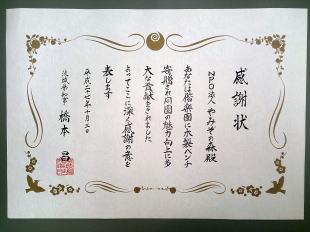 感謝状
NPO法人 やみぞの森殿
あなたは偕楽園に木製ベンチ
を寄贈され同園の魅力向上に多
大な貢献をされました
よってここに深く感謝の意を
表します
平成二十七年十月三日
茨城県知事 橋本 昌